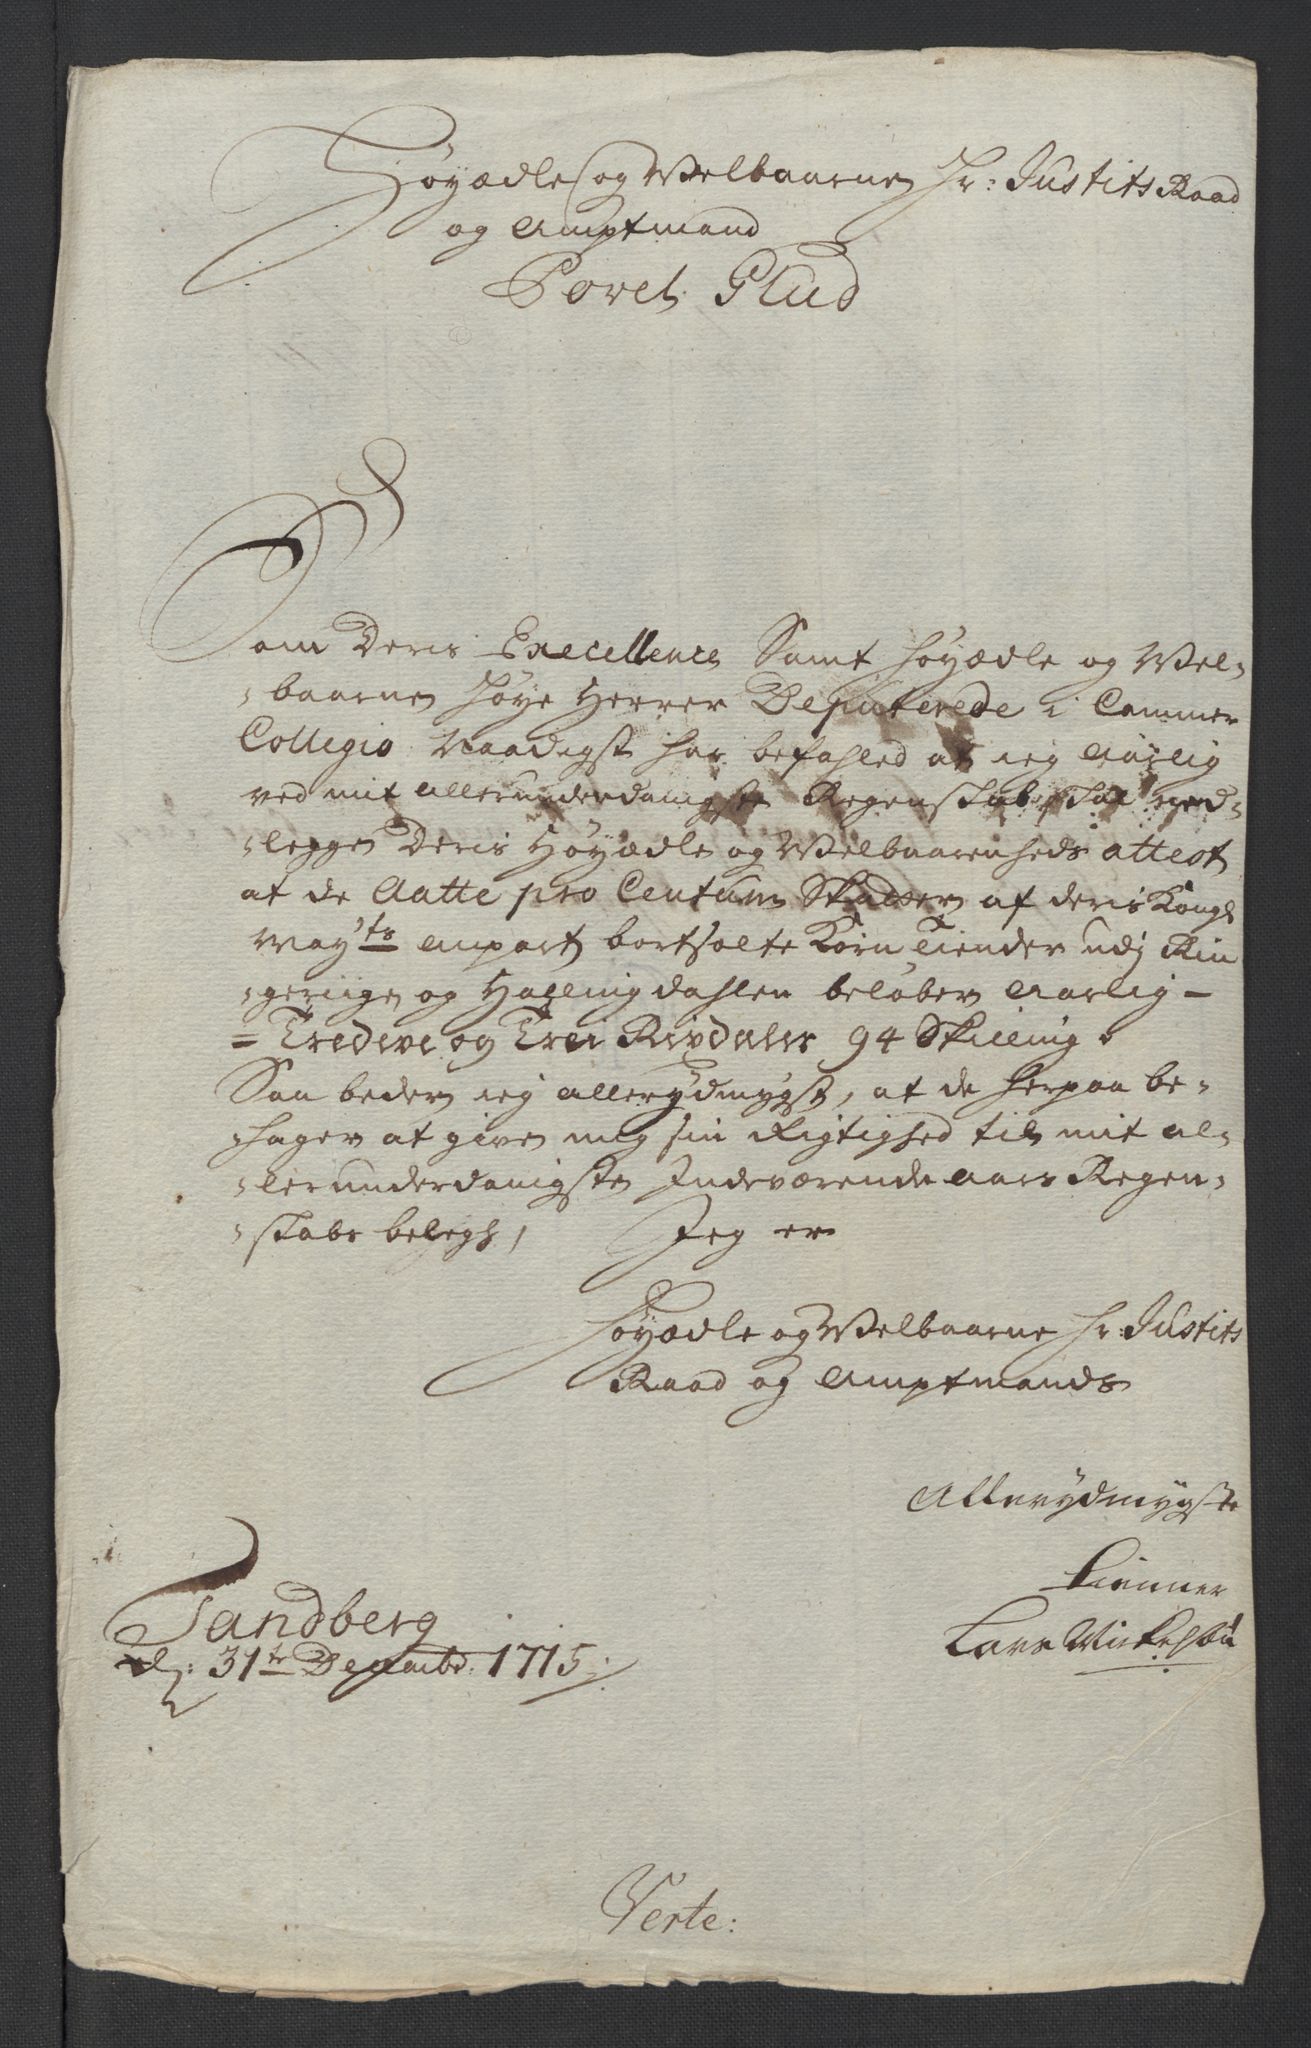 Høyædle og Velbaarne Hr: Justits Raad
og Amptmand
Povel Glud
Som Deris Execellence Samt Høyædle og Vel-
-baarne Høye Herrer Deputerede i Cammer
Collegio Naadegst har befahled at ieg Aarlig
ved mit allerunderdanigste Regenskab skal ved-
-legge Deris Høyædle og Velbaarenheds attest
at de Aatte pro Centum Skatter af deris Kongl
May:ts anpart bortsolte Korn Tiender udj Rin
-gerige og Hallingdahlen beløber Aarlig -
= Tredeve og Trei Rixdaler 94 Skilling
Saa beder ieg allerydmygst, at de herpaa be-
-hager at give mig sin Rigtighed til mit al-
-lerunderdanigste Indeværende aars Regen-
-skabs belegh, Jeg er
Høyædle og Velbaarne Hr: Justits
Raad og Amptmands
Allerydmygste
tienner
Lars
Sandberg
d: 31te Decembr: 1715
Verte: